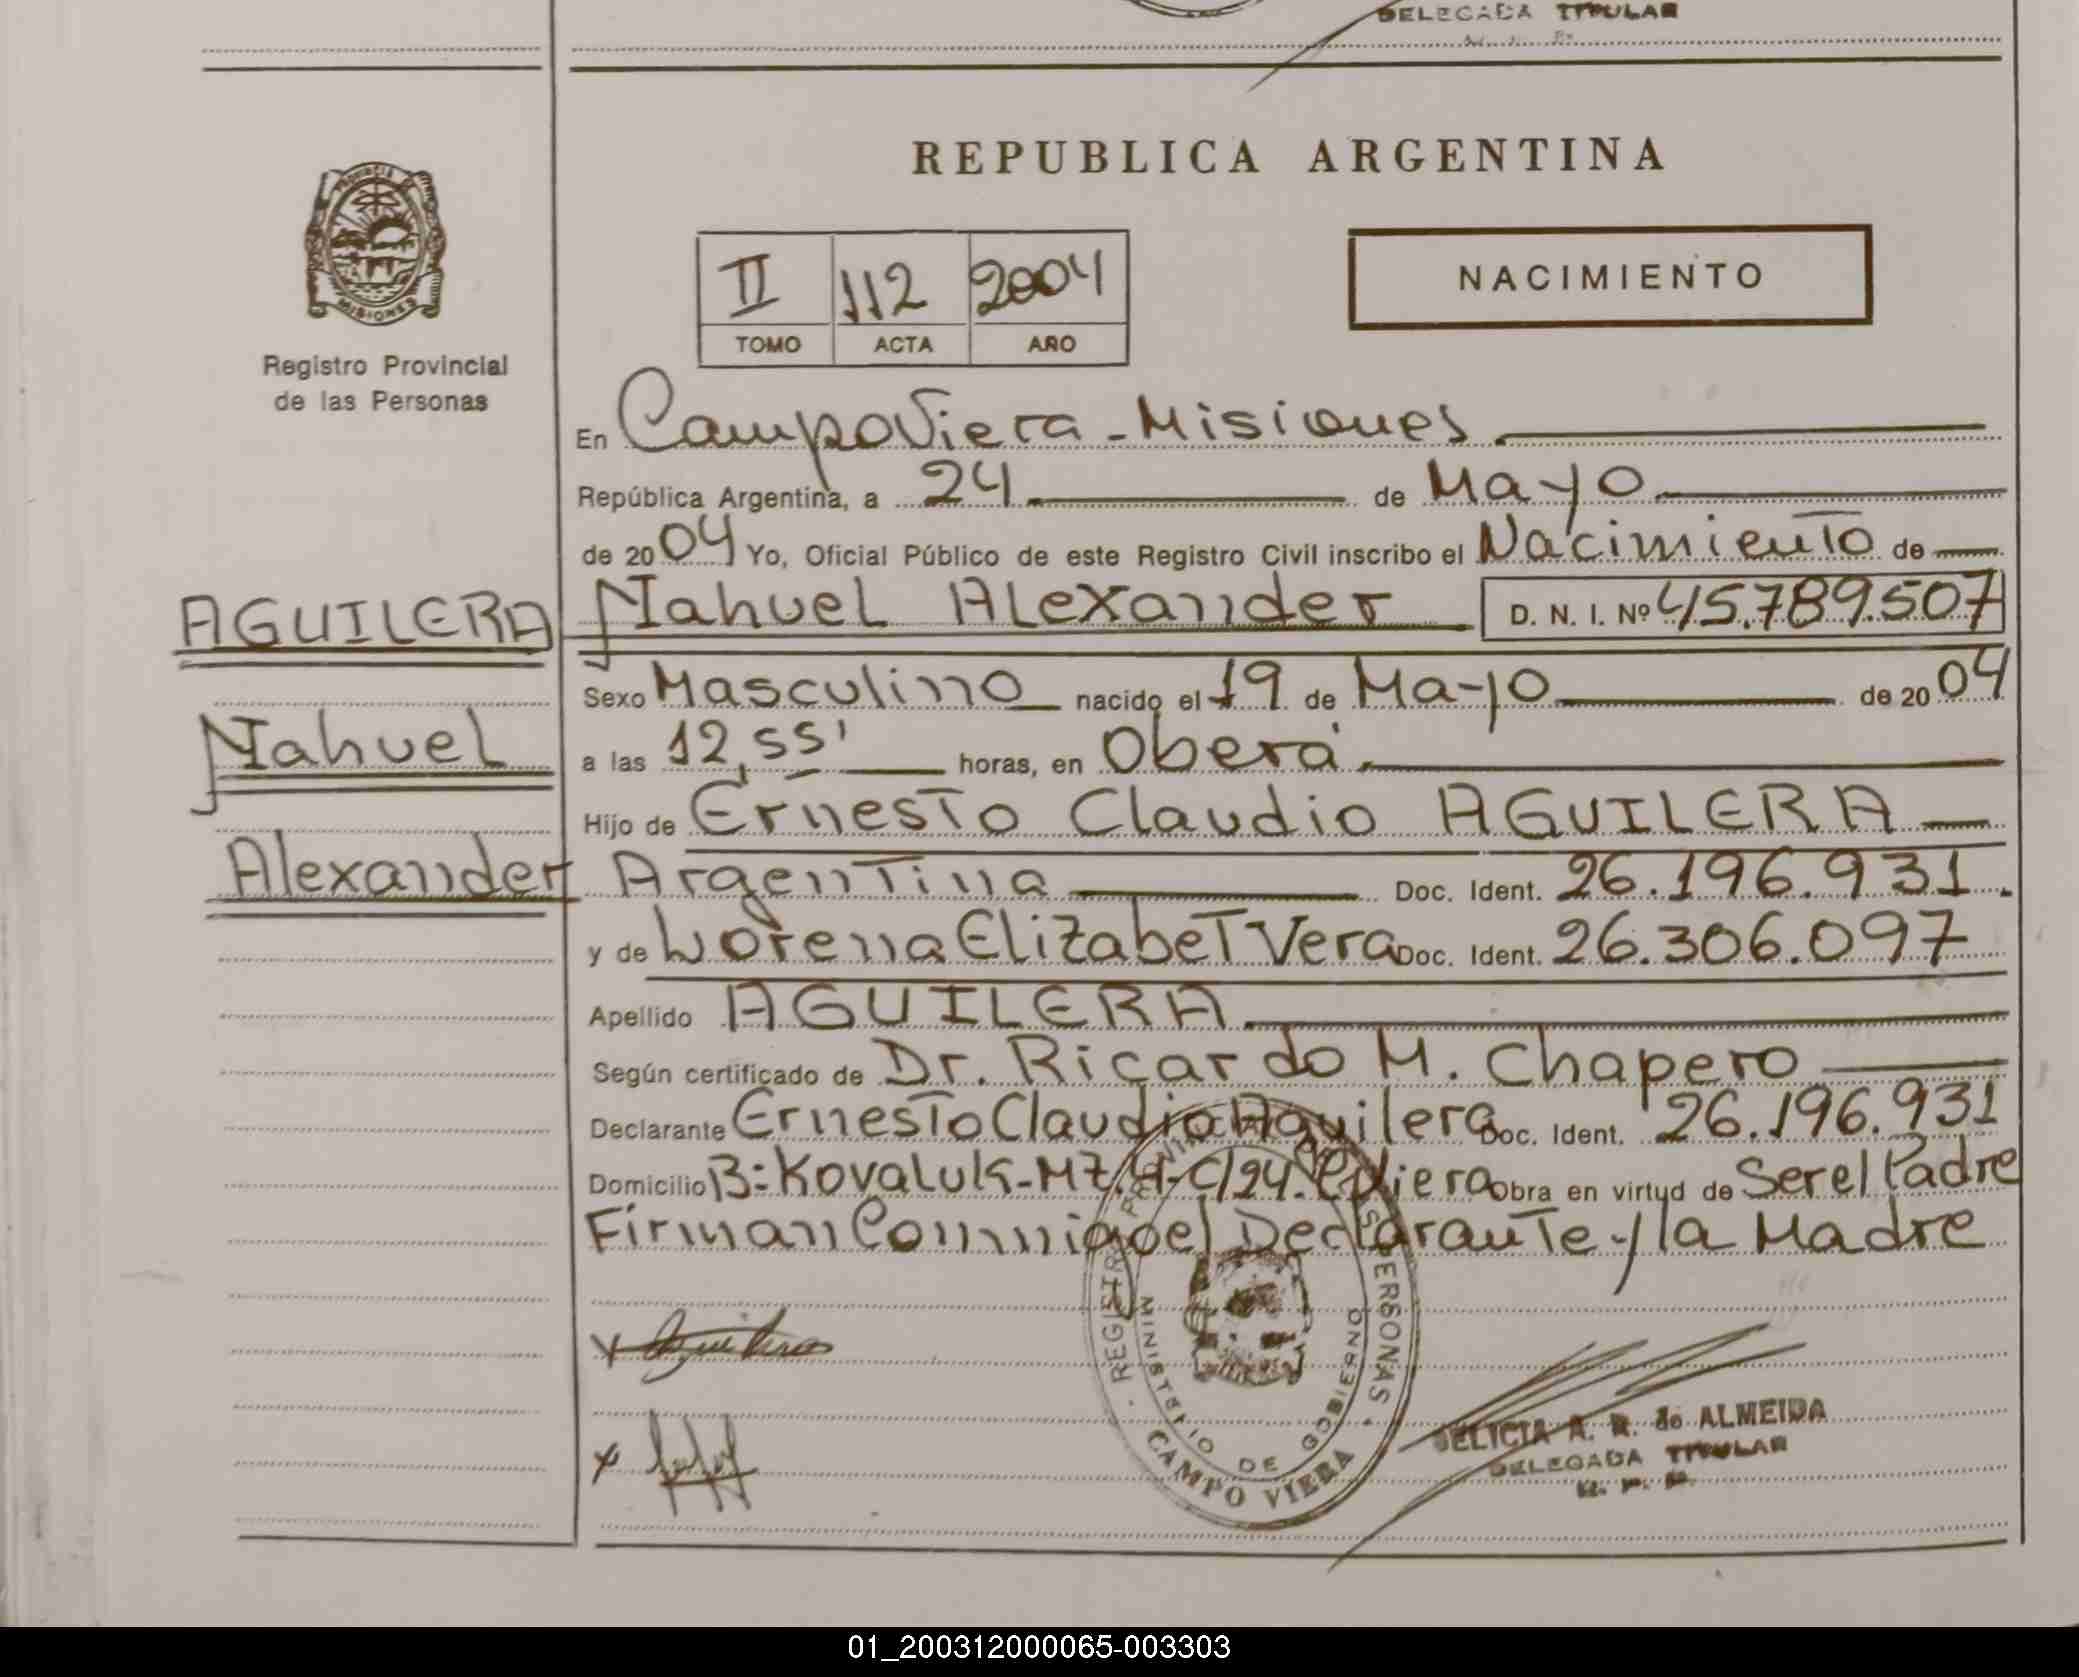 DELEGADA TITULAR
REPUBLICA ARGENTINA
PROVINCIA DE
MISIONES
Registro Provincial
de las Personas
II 112 2004
TOMO ACTA AÑO
NACIMIENTO
En Campo Viera - Misiones
República Argentina, a 24 de Mayo
de 2004 Yo, Oficial Público de este Registro Civil inscribo el Nacimiento de
AGUILERA Nahuel Alexander D. N. I. Nº 45.789.507
Sexo Masculino nacido el 19 de Mayo de 2004
Nahuel a las 12,55' horas, en Oberá
Hijo de Ernesto Claudio AGUILERA
Alexander Argentina Doc. Ident. 26.196.931.
y de Lorena Elizabet Vera Doc. Ident. 26.306.097
Apellido AGUILERA
Según certificado de Dr. Ricardo M. Chapero
Declarante Ernesto Claudio Aguilera Doc. Ident. 26.196.931
Domicilio B: Kovaluk-MZ. C/24. C. Viera Obra en virtud de Ser el Padre
Firman Conmigo el Declarante y la Madre
x Aguilera
x
REGISTRO PERSONAS
MINISTERIO DE GOBIERNO
CAMPO VIERA
DELICIA A. R. de ALMEIDA
DELEGADA TITULAR
R. P. P.
01_200312000065-003303